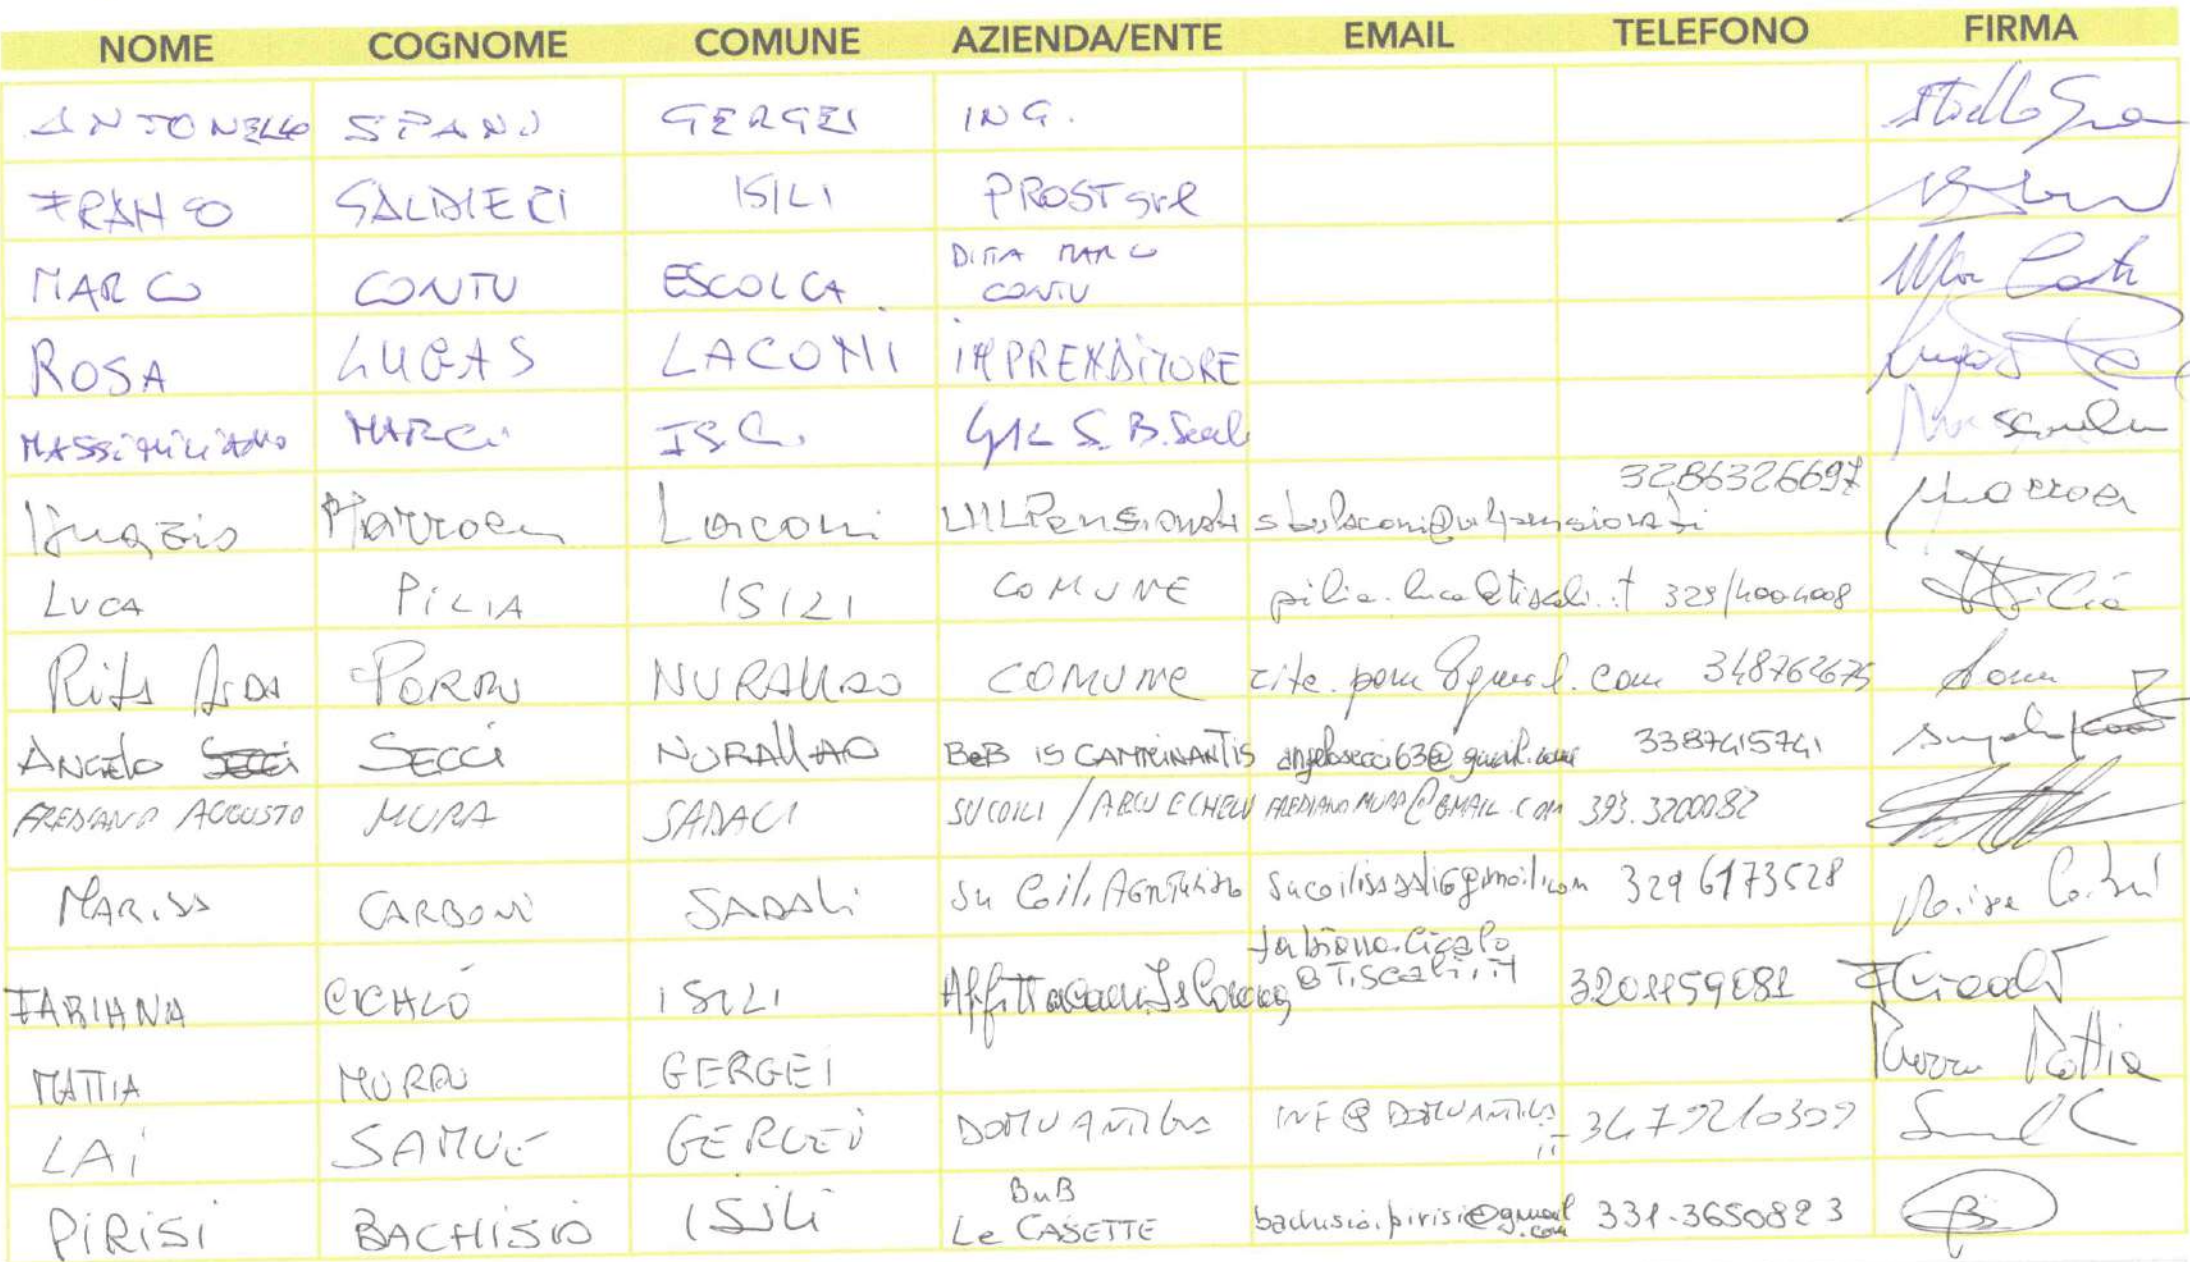 NOME COGNOME COMUNE AZIENDA/ENTE EMAIL TELEFONO FIRMA
ANTONELLO SPANU GERGEI ING.
FRANCO SALDIERI ISILI PROST srl
MARCO CONTU ESCOLCA DITTA MARCO CONTU
ROSA LUGAS LACONI IMPRENDITORE
MASSIMILIANO MARCI S. B.
Ignazio Marrocu Laconi UILPensionati 3286326697
LUCA PILIA ISILI COMUNE pilia.luca@tiscali.it 329/4004008
Rita PORRU NURALLAO COMUNE 348762675
ANGELO SECCI NURALLAO BeB IS CAMMINANTIS angelosecci63@gmail.com 3387415741
FREDIANO AUGUSTO MURA SADALI SU COILI / ARCU E CHELU FREDIANOMURA@GMAIL.COM 393.3200082
MARISA CARBONI SADALI Su Coili 3296173528
FABIANA CICALÒ ISILI fabiana.cicalo@Tiscali.it
MATTIA MURRU GERGEI Murru Mattia
LAI SAMUE GERGEI DOMU ANTIGA 3479210309
PIRISI BACHISIO ISILI BnB Le CASETTE bachisio.pirisi@gmail.com 331.3650823